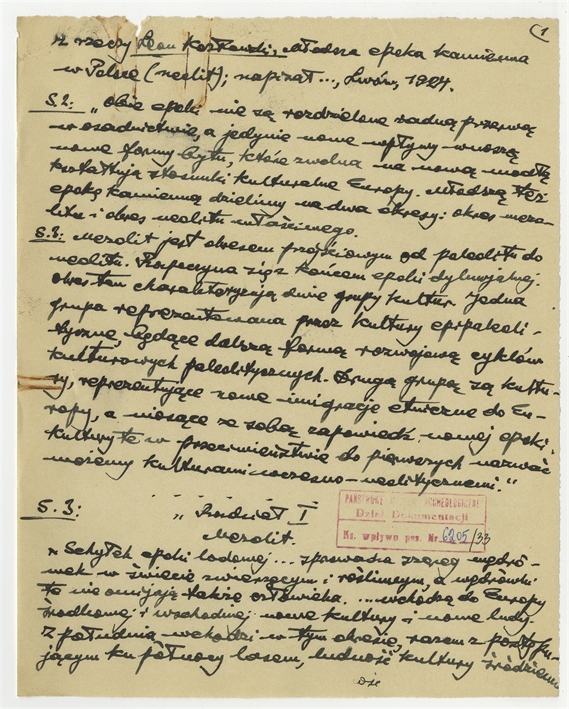 (1
Z rzeczy Leon Kozłowski, Młodsza epoka kamienna
w Polsce (neolit); napisał ..., Lwów, 1924.
S.2: „Obie epoki nie są rozdzielone żadną przerwą
w osadnictwie, a jedynie nowe wpływy wnoszą
nowe formy bytu, które zwolna na nową modłę
kształtują stosunki kulturalne Europy. Młodszą też
epokę kamienną dzielimy na dwa okresy: okres mezo-
litu i okres neolitu właściwego.
S.3: Mezolit jest okresem przejściowym od paleolitu do
neolitu. Rozpoczyna się z końcem epoki dyluwjalnej.
Okres ten charakteryzują dwie grupy kultur. Jedna
grupa reprezentowana przez kultury epipaleoli-
tyczne, będące dalszą formą rozwojową cyklów
kulturowych paleolitycznych. Drugą grupą są kultu-
ry, reprezentujące nowe imigracje etniczne do Eu-
ropy, a niosące ze sobą zapowiedź nowej epoki.
Kultury te w przeciwieństwie do pierwszych nazwać
możemy kulturami wczesno-neolitycznemi."
S.3: „Rozdział I
Mezolit.
PAŃSTWOWE ARCHEOLOGICZNE
Dział Dokumentacji
Ks. wpływu poz. Nr. 6205/33
„Schyłek epoki lodowej ... sprowadza szereg wędró-
wek w świecie zwierzęcym i roślinnym, a wędrówki
te nie omijają także człowieka. ... wchodzą do Europy
środkowej i wschodniej nowe kultury i nowe ludy.
Z południa wchodzi w tym okresie, razem z postępu-
jącym ku północy lasem, ludność kultury śródziemn